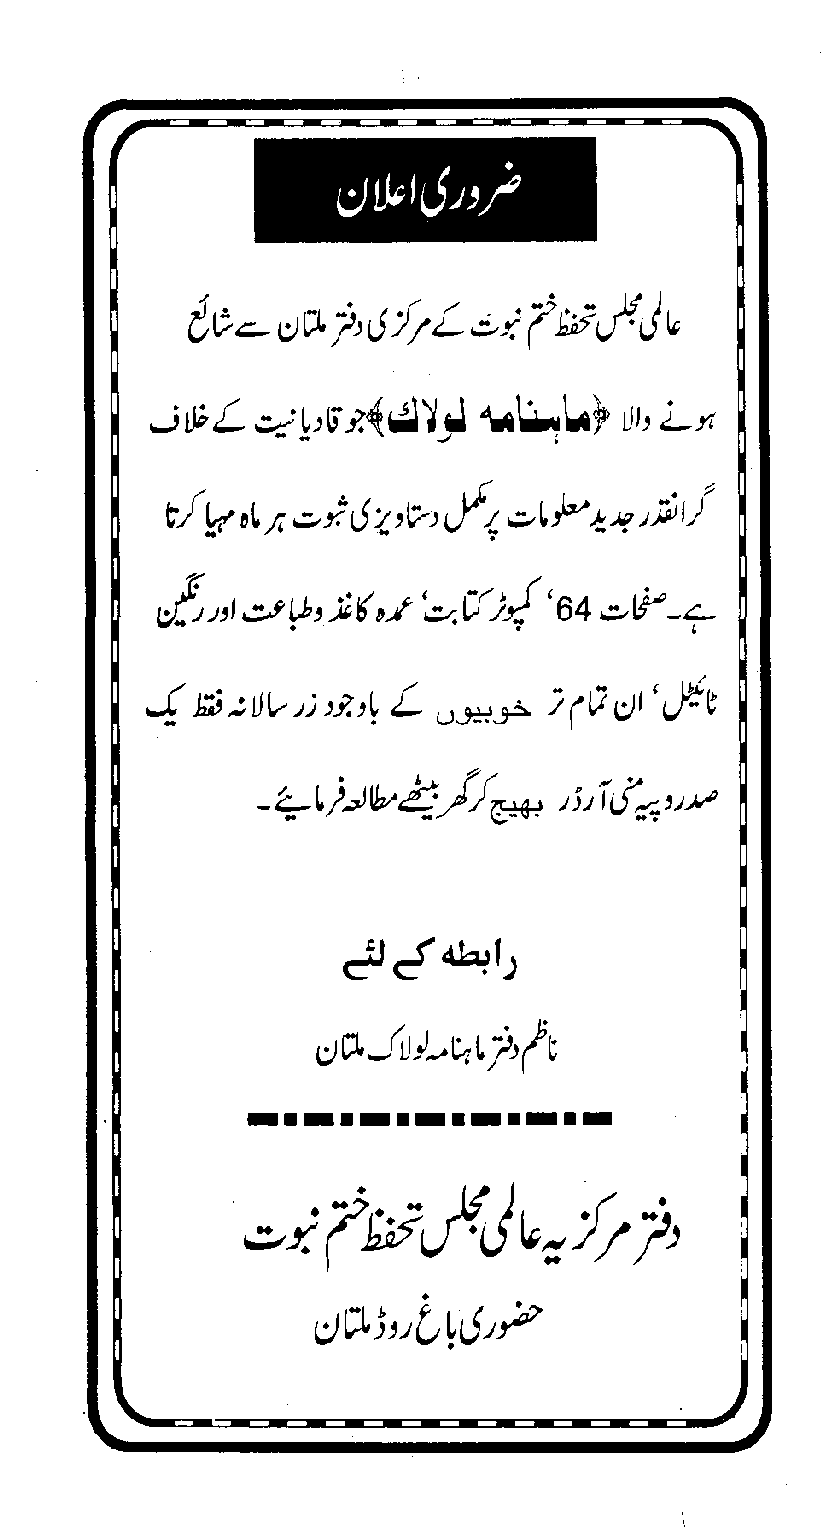 ضروری اعلان
عالمی مجلس تحفظ ختم نبوت کے مرکزی دفتر ملتان سے شائع
ہونے والا ﴿ماہنامہ لولاک﴾ جو قادیانیت کے خلاف
گرانقدر جدید معلومات پر مکمل دستاویزی ثبوت ہر ماہ مہیا کرتا
ہے۔ صفحات 64‘ کمپوٹر کتابت‘ عمدہ کاغذ و طباعت اور رنگین
ٹائیٹل‘ ان تمام تر خوبیوں کے باوجود زر سالانہ فقط یک
صد روپیہ منی آرڈر بھیج کر گھر بیٹھے مطالعہ فرمائیے۔
رابطہ کے لئے
ناظم دفتر ماہنامہ لولاک ملتان
دفتر مرکزیہ عالمی مجلس تحفظ ختم نبوت
حضوری باغ روڈ ملتان